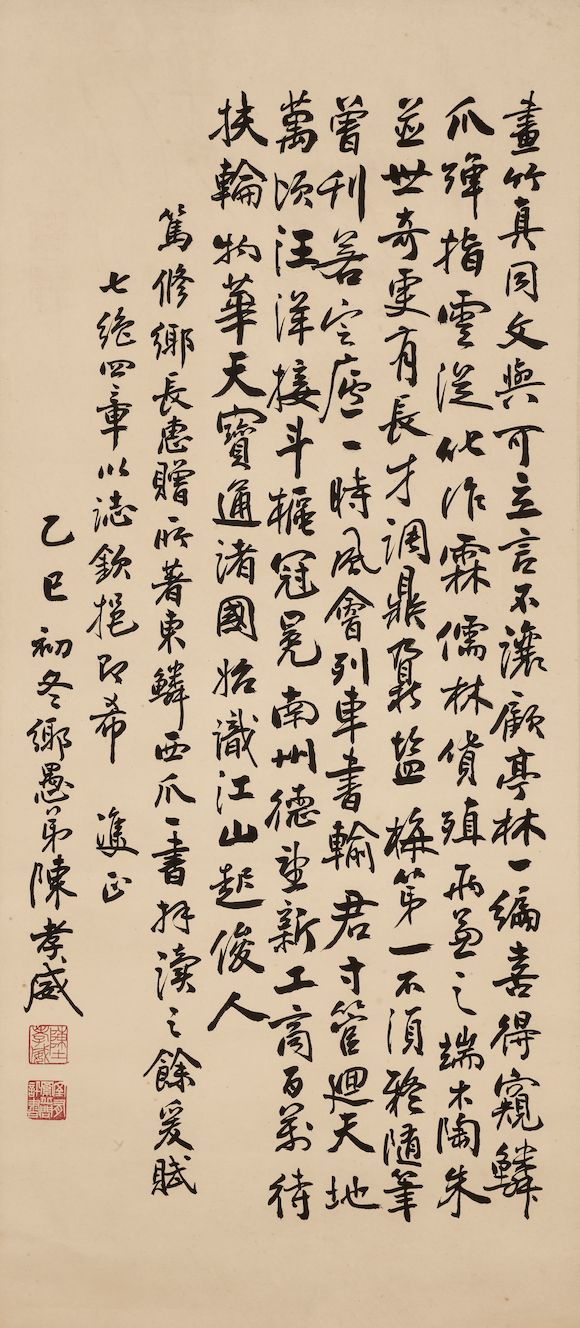 畫竹真同文與可立言不讓顧亭林一編喜得窺鱗
爪彈指雲從化作霖儒林貨殖兩兼之端木陶朱
並世奇更有長才調鼎鼐鹽梅第一不須移隨筆
曾刊若定廬一時風會列車書輸君寸管迴天地
萬頃汪洋接斗樞冠冕南州德望新工商百萬待
扶輪物華天寶通諸國始識江山起俊人
篤修鄉長惠贈所著東鱗西爪一書拜讀之餘爰賦
七絕四章以誌欽挹即希 雙正
乙巳初冬鄉愚弟陳孝威